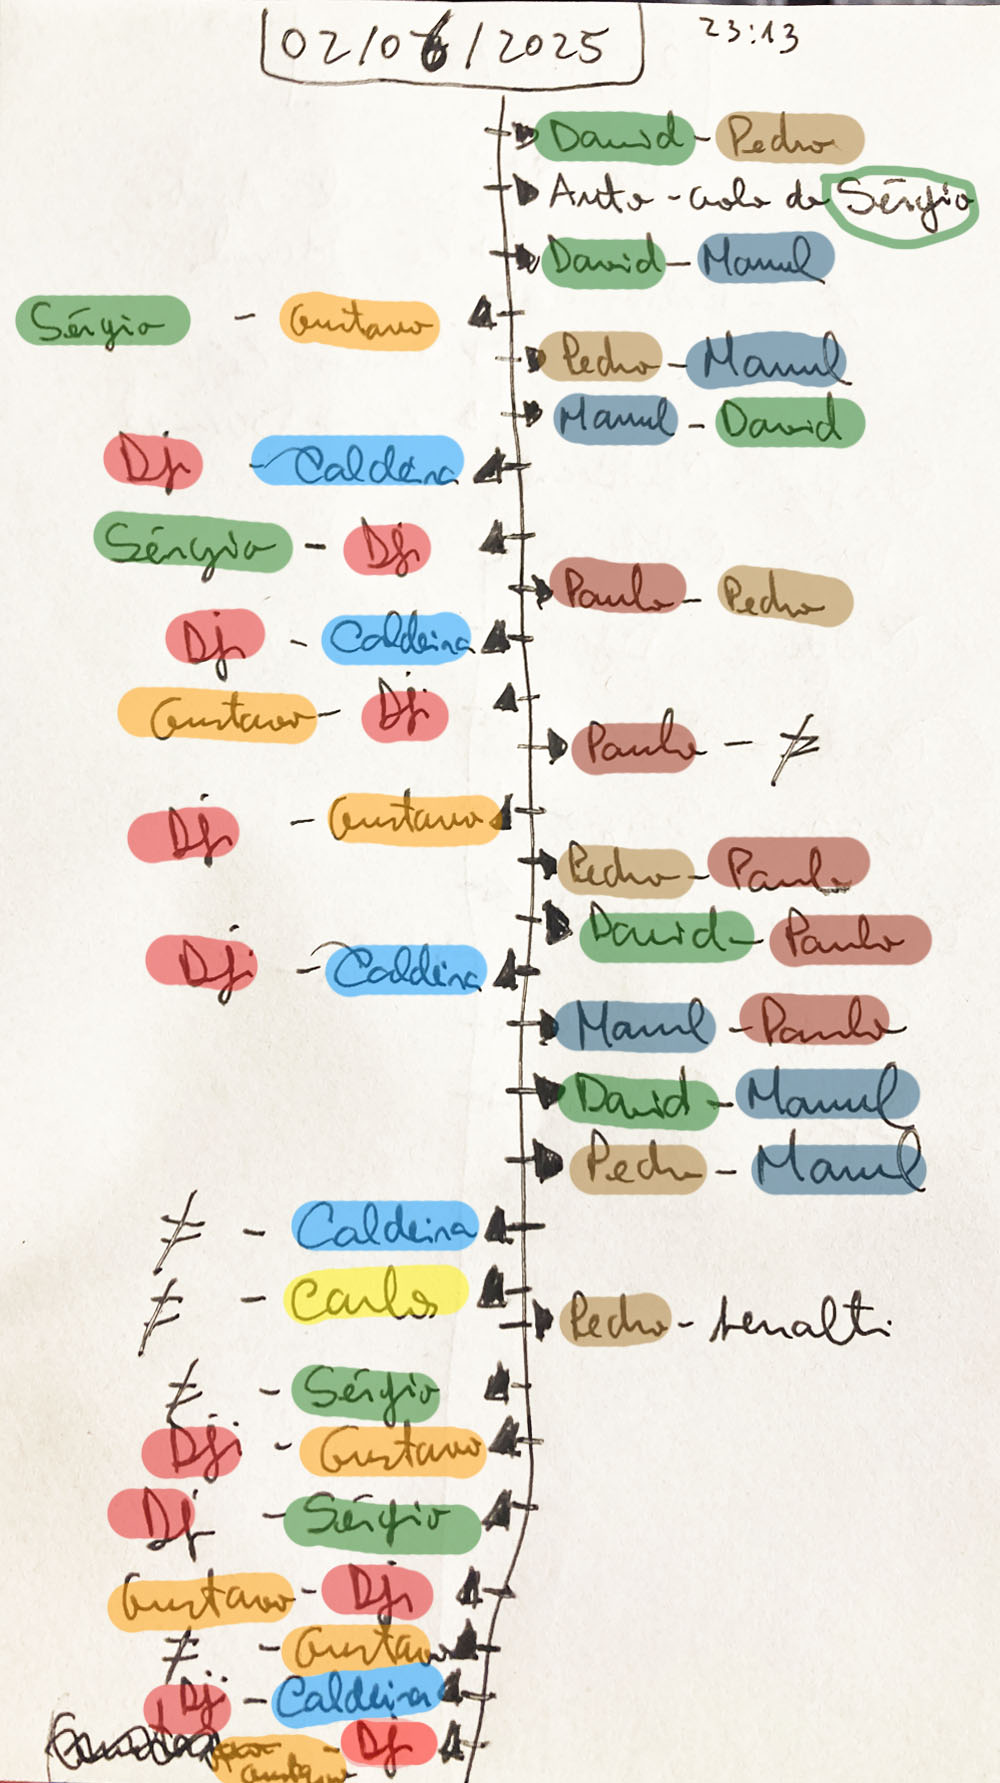 02/06/2025 23:13
David - Pedro
Auto-golo do Sérgio
David - Manuel
Sérgio - Gustavo
Pedro - Manuel
Manuel - David
Dji - Caldeira
Sérgio - Dji
Paulo - Pedro
Dji - Caldeira
Gustavo - Dji
Paulo - ≠
Dji - Gustavo
Pedro - Paulo
David - Paulo
Dji - Caldeira
Manuel - Paulo
David - Manuel
Pedro - Manuel
≠ - Caldeira
≠ - Carlos
Pedro - penalti
≠ - Sérgio
Dji - Gustavo
Dji - Sérgio
Gustavo - Dji
≠ - Gustavo
Dji - Caldeira
Gustavo - Dji